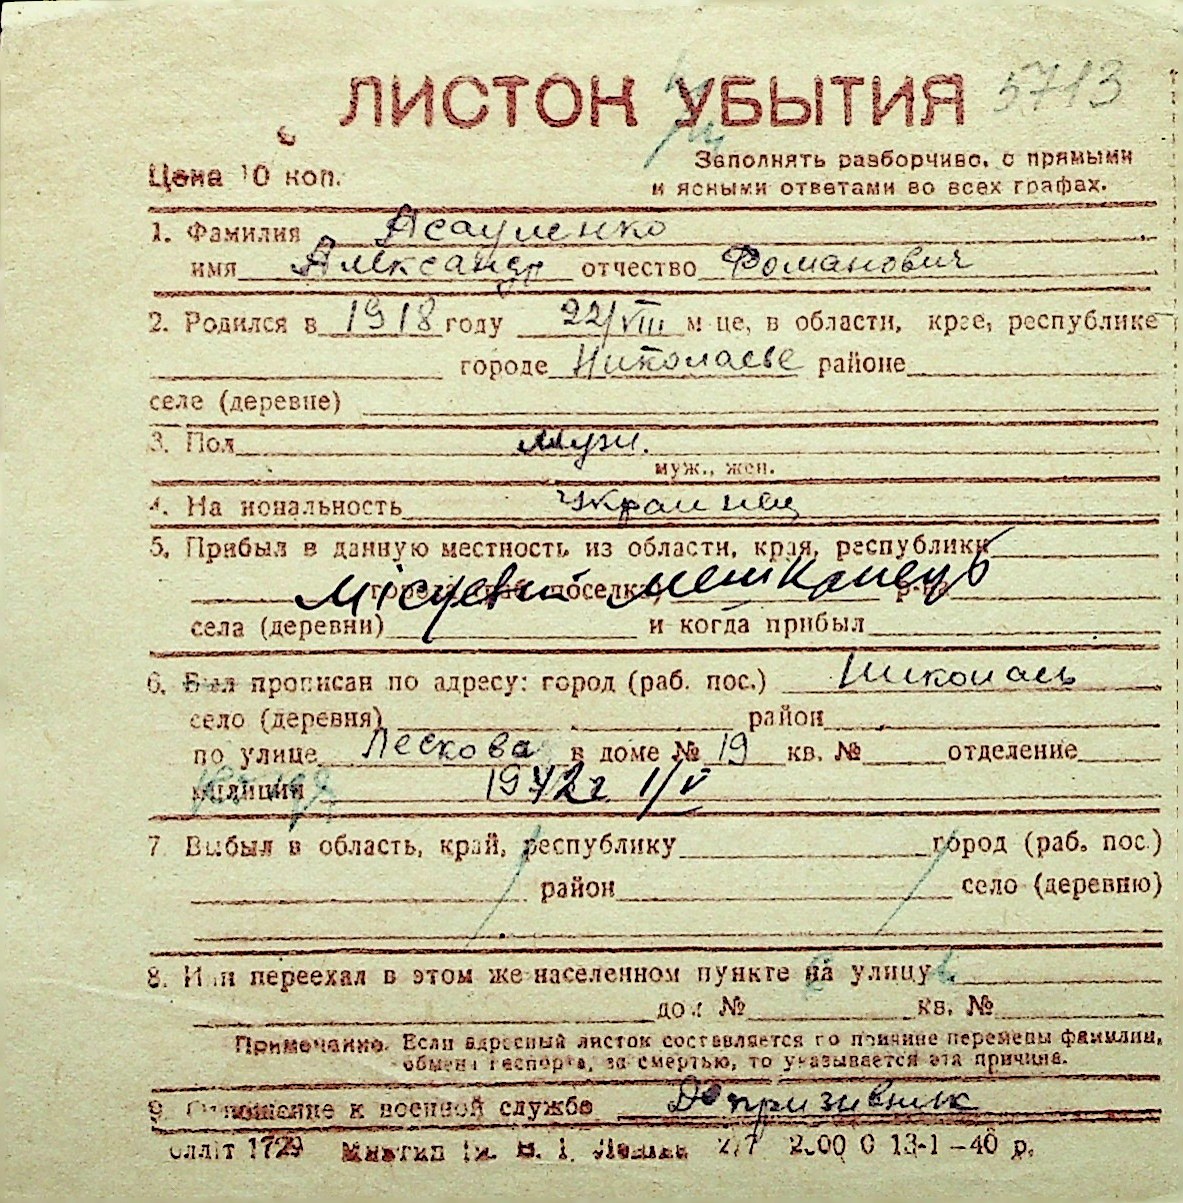 ЛИСТОК УБЫТИЯ 5713
Цена 10 коп.
Заполнять разборчиво, с прямыми
и ясными ответами во всех графах.
1. Фамилия Асауленко
имя Александр отчество Романович
2. Родился в 1918 году 22/VIII м-це, в области, крае, республике
городе Николаеве районе
селе (деревне)
3. Пол муж.
муж., жен.
4. Национальность Украинец
5. Прибыл в данную местность из области, края, республики
города раб. поселка р-на
Місцевий мешканець
села (деревни) и когда прибыл
6. Был прописан по адресу: город (раб. пос.) Николаев
село (деревня) район
по улице Лескова в доме № 19 кв. № отделение
милиции 1942 г. 1/V
7. Выбыл в область, край, республику город (раб. пос.)
район село (деревню)
8. Или переехал в этом же населенном пункте на улицу
дом № кв. №
Примечание. Если адресный листок составляется по причине перемены фамилии,
обмена паспорта, за смертью, то указывается эта причина.
9. Отношение к военной службе Допризивник
1729 2/7 13-1-40 р.